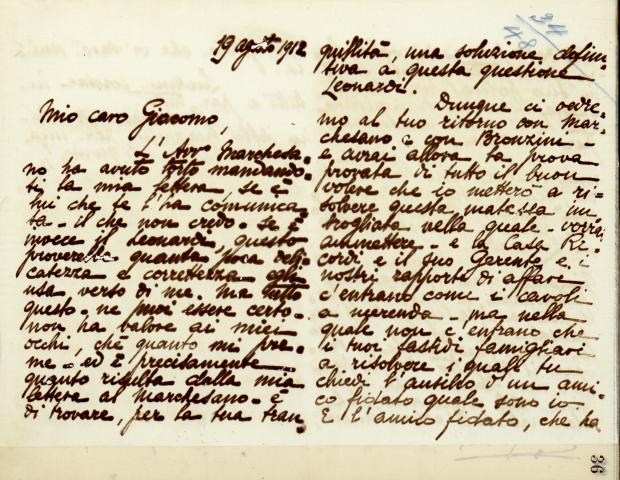 19 agosto 1912
Mio caro Giacomo,
L'Avv Marchesa-
no ha avuto torto mandando-
ti la mia lettera, se è
lui che te l'ha comunica-
ta - il che non credo. Se è
invece il Leonardi, questo
proverebbe quanta poca deli-
catezza e correttezza egli
usa verso di me. Ma tutto
questo - ne puoi essere certo -
non ha valore ai miei
occhi, chè quanto mi pre-
me - ed è precisamente
quanto risulta dalla mia
lettera al Marchesano - è
di trovare, per la tua tran
quillità, una soluzione defini-
tiva a questa questione
Leonardi.
Dunque ci vedre-
mo al tuo ritorno con Mar-
chesano e con Bronzini -
e avrai allora la prova
provata di tutto il buon
volere che io metterò a ri-
solvere questa matassa im-
brogliata nella quale - vorrai
ammettere - e la Casa Ri-
cordi e il suo Gerente e i
nostri rapporti di affare
c'entrano come i cavoli
a merenda - ma nella
quale non c'entrano che
i tuoi fastidi famigliari
a risolvere i quali tu
chiedi l'ausilio d'un ami-
co fidato quale sono io
E l'amico fidato, che ha
36